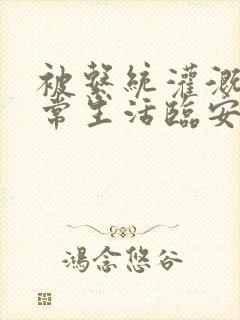 被繫統灌溉
常生活臨安
鴻念悠谷